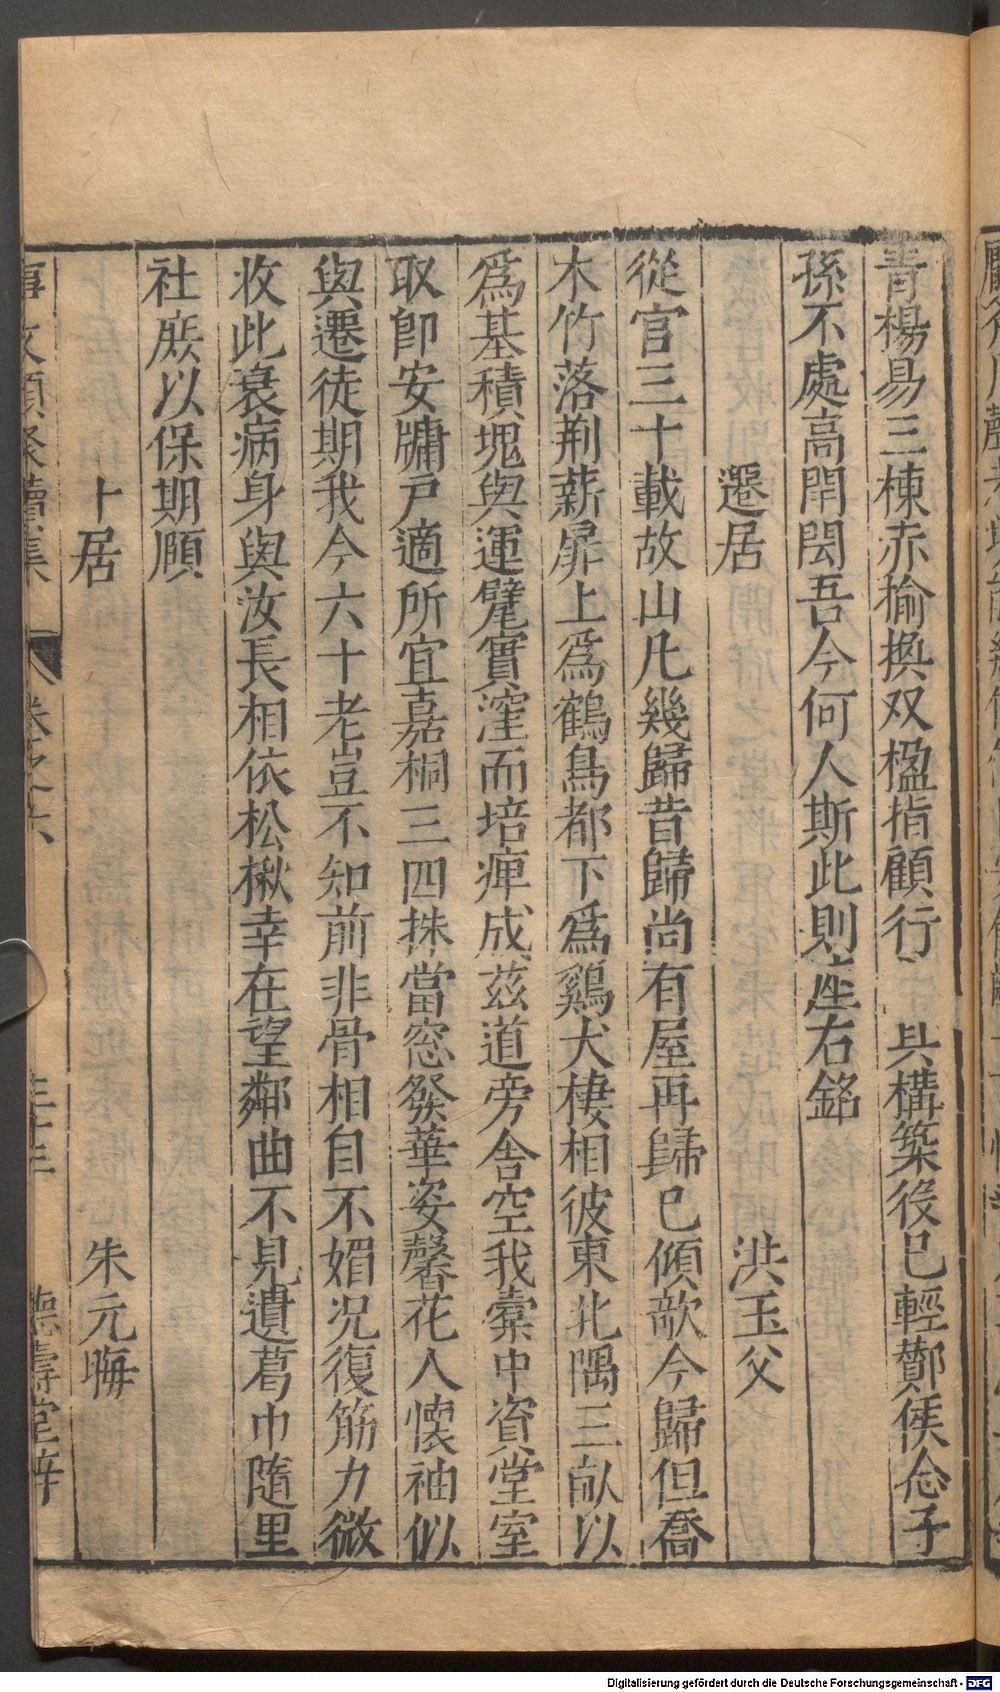 青楊易三棟赤榆換双楹指顧行 具構築役已輕鄭侯念子
孫不處高閈閎吾今何人斯此則座右銘
遷居 洪玉父
從官三十載故山凡幾歸昔歸尚有屋再歸已傾欹今歸但喬
木竹落荆薪扉上爲鶴鳥都下爲鷄犬棲相彼東北隅三畝以
爲基積塊與運甓實窪而培痺成兹道旁舍空我橐中資堂室
取卽安牗戸適所宜嘉桐三四株當窓發華姿馨花入懐袖似
與遷徙期我今六十老豈不知前非骨相自不媚况復筋力微
收此衰病身與汝長相依松楸幸在望鄰曲不見遺葛巾隨里
社庶以保期頤
卜居 朱元晦
事文類聚續集 卷之六 三十三 德壽堂梓
Digitalisierung gefördert durch die Deutsche Forschungsgemeinschaft - DFG